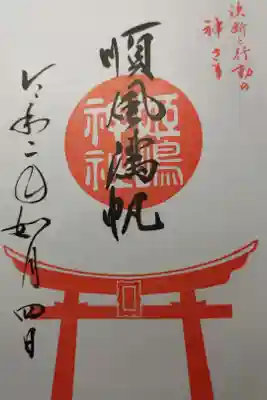 決断と行動の
神さま
順風満帆
姫嶋
神社
令和二年如月四日